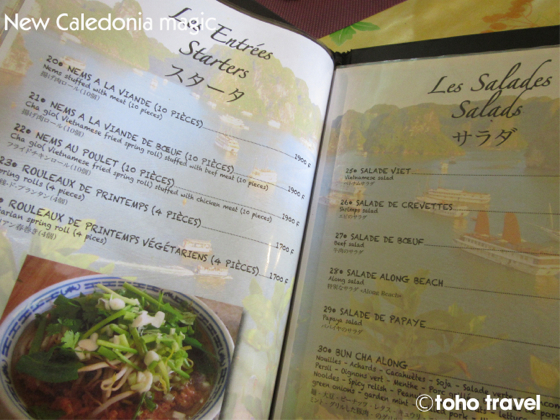 New Caledonia magic
Les Entrées
Starters
スターター
20* NEMS A LA VIANDE (10 PIÈCES)
Nems stuffed with meat (10 pieces)
揚げ肉ロール(10個)
1900 F
21* NEMS A LA VIANDE DE BŒUF (10 PIÈCES)
Cha gio( Vietnamese fried spring roll) stuffed with beef meat (10 pieces)
揚げ肉ロール(10個)
1900 F
22* NEMS AU POULET (10 PIÈCES)
Cha gio( Vietnamese fried spring roll) stuffed with chicken meat (10 pieces)
フライドチキンロール(10個)
1900 F
23* ROULEAUX DE PRINTEMPS (4 PIÈCES)
Spring rolls (4 pieces)
1700 F
ROULEAUX DE PRINTEMPS VÉGÉTARIENS (4 PIÈCES)
spring roll (4 pieces)
1700 F
Les Salades
Salads
サラダ
25* SALADE VIET
Vietnamese salad
ベトナムサラダ
26* SALADE DE CREVETTES
Shrimps salad
エビのサラダ
27* SALADE DE BŒUF
Beef salad
牛肉のサラダ
28* SALADE ALONG BEACH
Along salad
29* SALADE DE PAPAYE
Papaya salad
パパイヤのサラダ
30* BUN CHA ALONG
Nouilles - Achards - Cacahuètes - Soja - Salade
Persil - Oignons vert - Menthe
Noodles - Spicy relish - Peanuts
green onions - garden mint
©toho travel